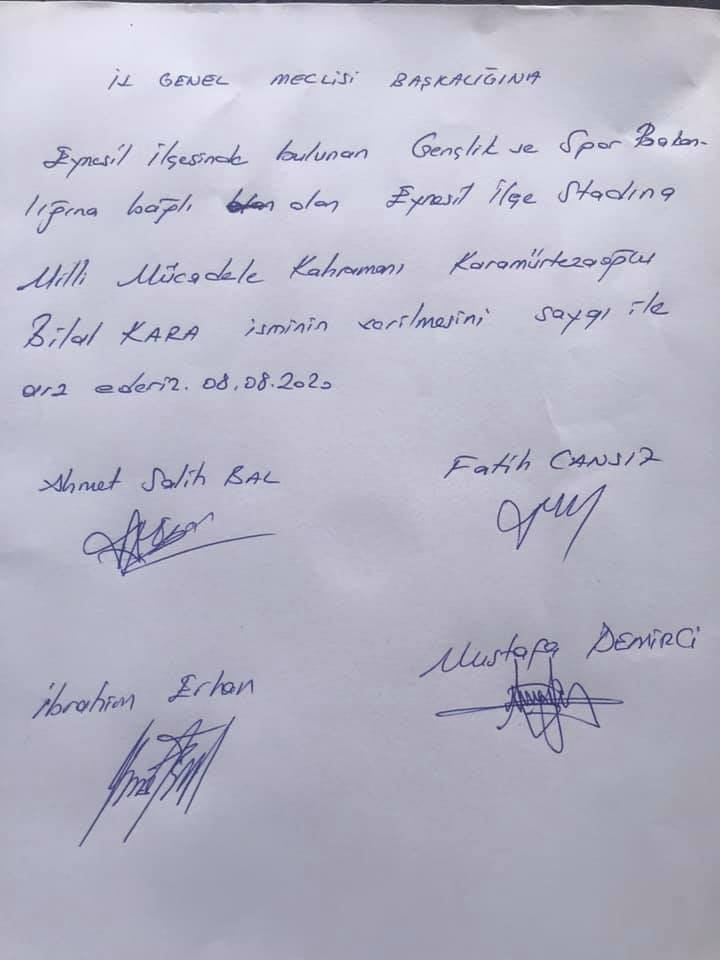 İL GENEL MECLİSİ BAŞKALIĞINA
Eynesil ilçesinde bulunan Gençlik ve Spor Bakan-
lığına bağlı olan Eynesil İlçe Stadına
Milli Mücadele Kahramanı Karamürtezaoğlu
Bilal KARA isminin verilmesini saygı ile
arz ederiz. 08.08.2020
Ahmet Salih BAL
Fatih CANSIZ
İbrahim Erhan
Mustafa DEMİRCİ